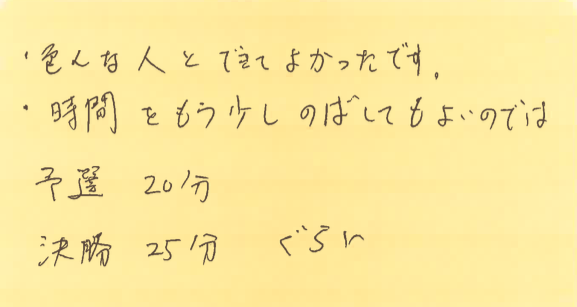 ・色んな人とできてよかったです。
・時間をもう少しのばしてもよいのでは
予選 20分
決勝 25分 ぐらい